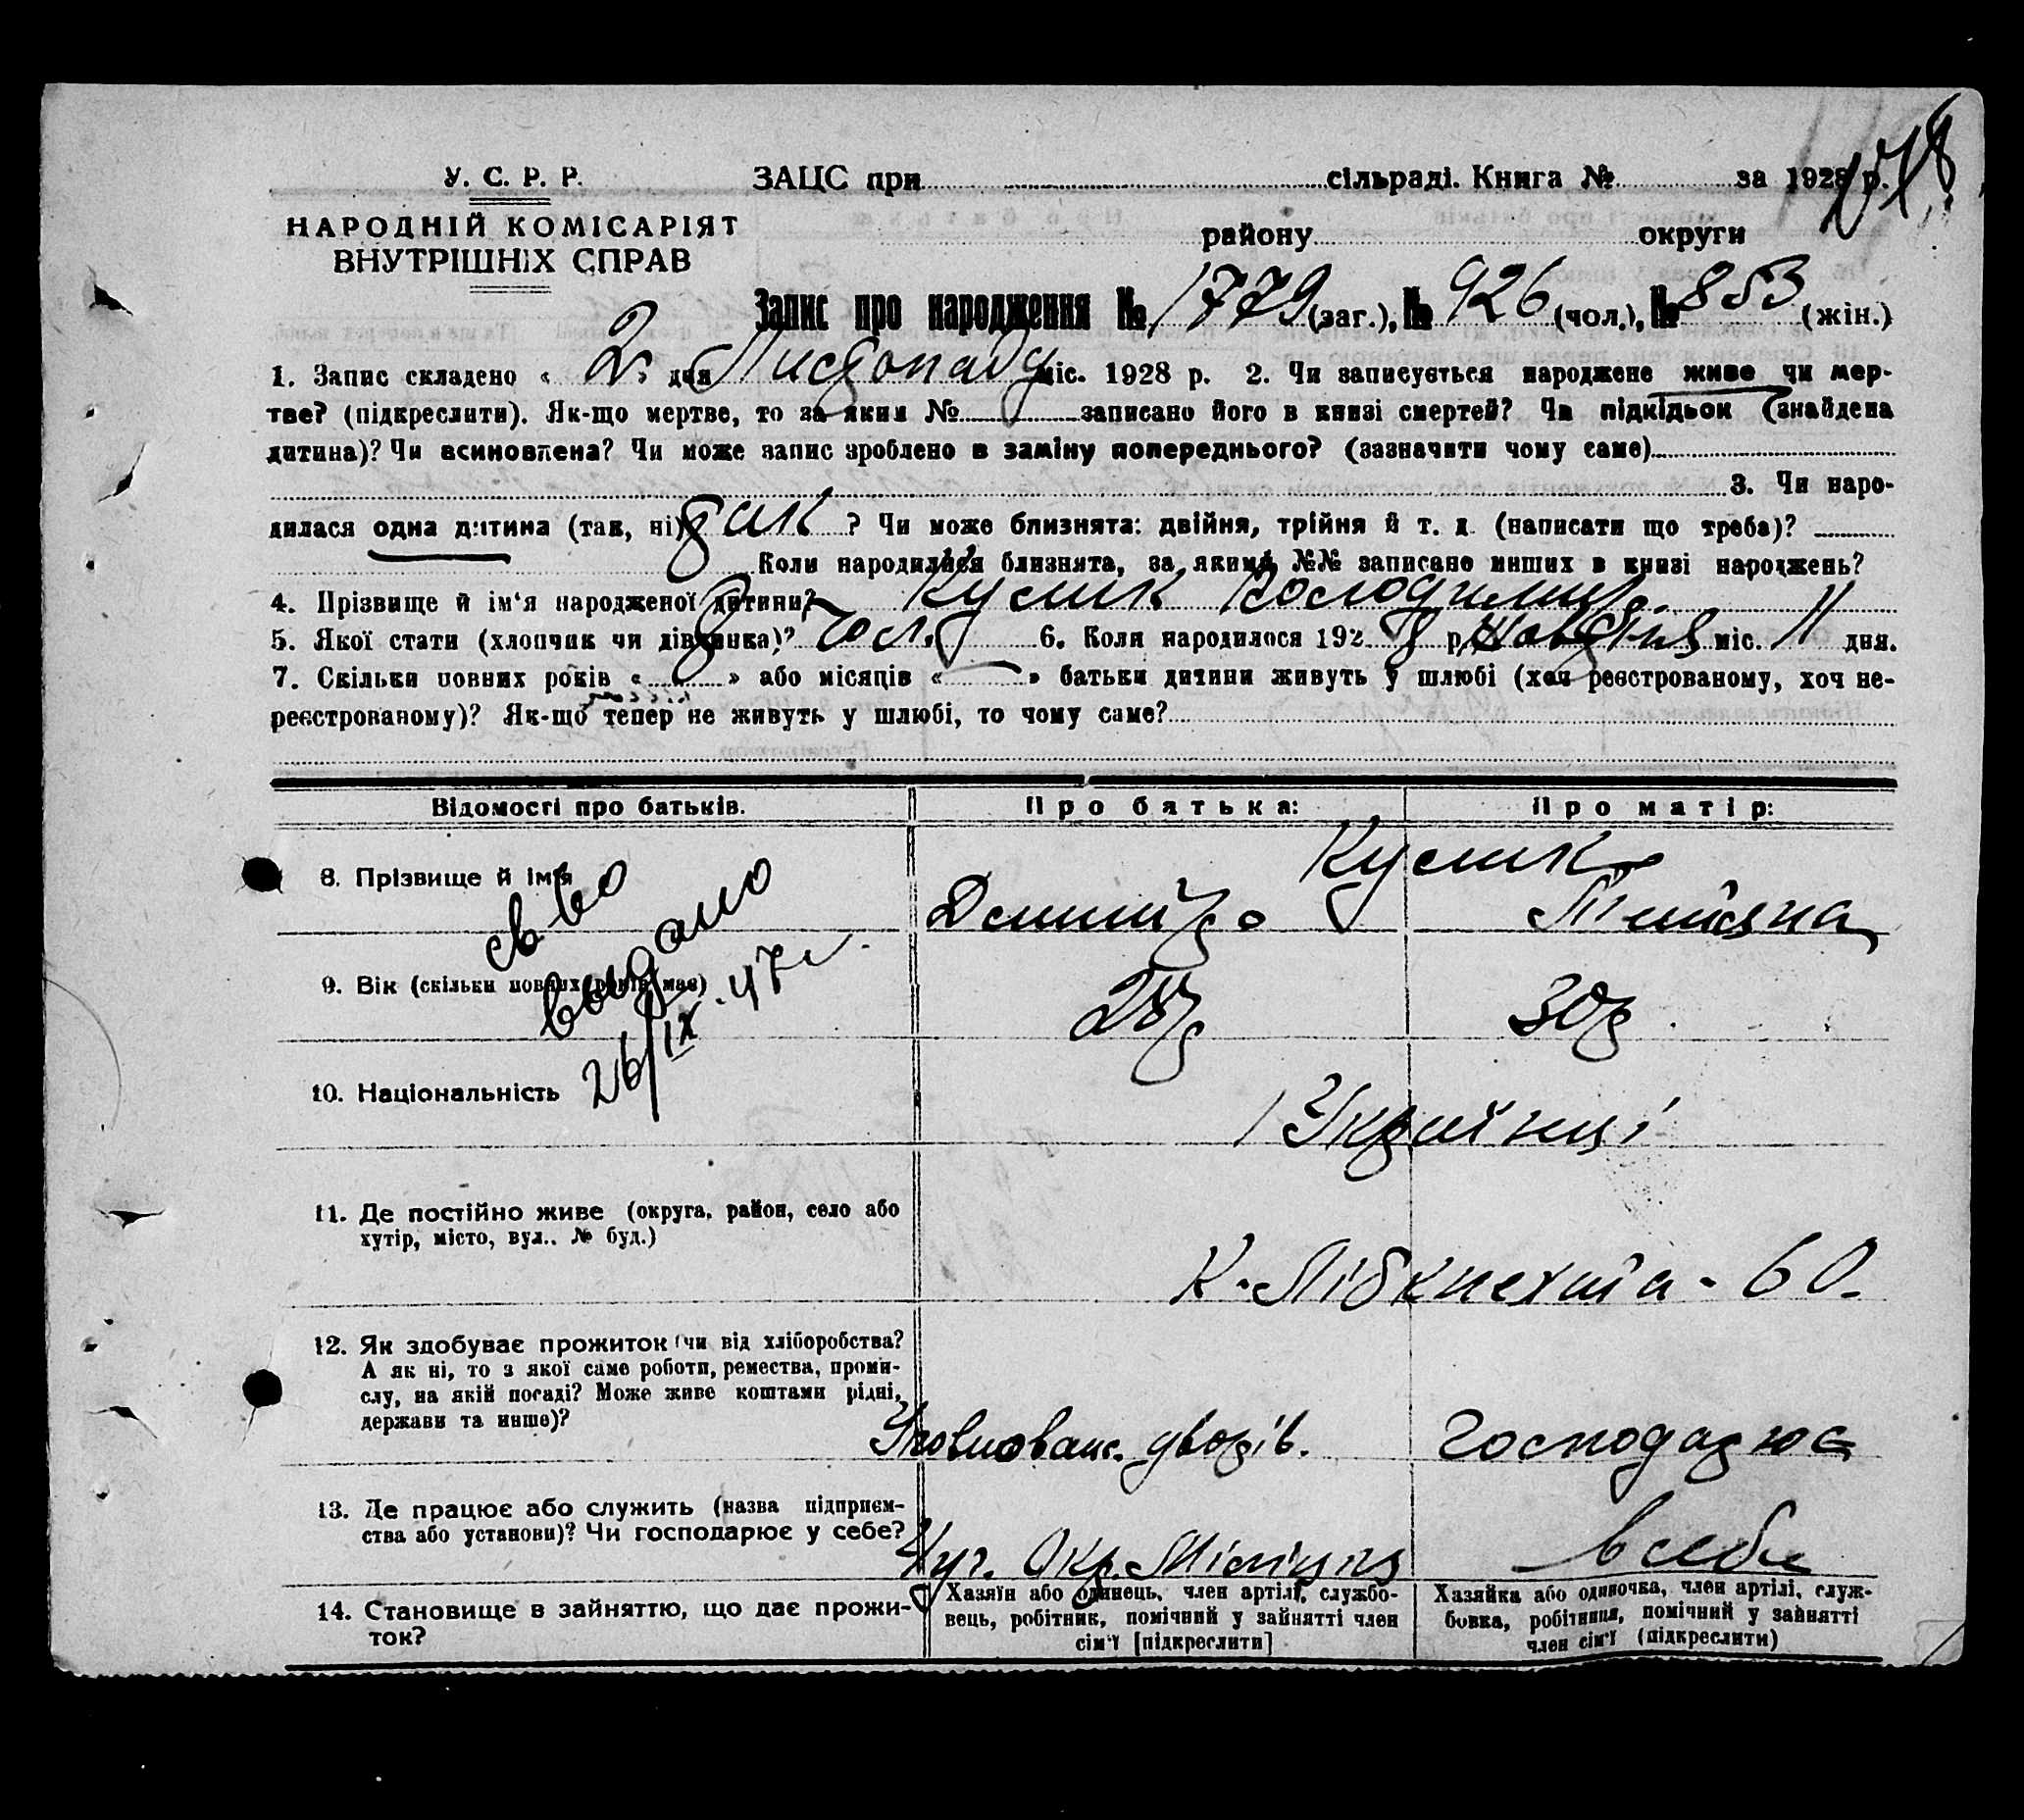 У. С. Р. Р.
НАРОДНІЙ КОМІСАРІЯТ
ВНУТРІШНІХ СПРАВ
ЗАЦС при сільраді. Книга № за 1928 р.
району округи
Запис про народження № 1779 (заг.), № 926 (чол.), № 853 (жін.)
1. Запис складено « 2 » дня Листопаду міс. 1928 р. 2. Чи записується народжене живе чи мер-
тве? (підкреслити). Як-що мертве, то за яким № записано його в книзі смертей? Чи підкідьок (знайдена
дитина)? Чи всиновлена? Чи може запис зроблено в заміну попереднього? (зазначити чому саме)
3. Чи наро-
дилася одна дитина (так, ні) так ? Чи може близнята: двійня, трійня й т. д. (написати що треба)?
Коли народилися близнята, за якими №№ записано инших в книзі народжень?
4. Прізвище й ім'я народженої дитини? Кулик Володимир
5. Якої стати (хлопчик чи дівчинка)? чол. 6. Коли народилося 192 8 р. Жовтня міс. 11 дня.
7. Скільки повних років « » або місяців « — » батьки дитини живуть у шлюбі (хоч реєстрованому, хоч не-
реєстрованому)? Як-що тепер не живуть у шлюбі, то чому саме?
Відомості про батьків.
Про батька:
Про матір:
8. Прізвище й ім'я
Кулик
Дмитро
Тетяна
св-во
выдано
26/IX-47 г.
9. Вік (скільки повних років має)
28 р
30 р
10. Національність
Українці
11. Де постійно живе (округа, район, село або
хутір, місто, вул.. № буд.)
К-Лібкнехта - 60.
12. Як здобуває прожиток (чи від хліборобства?
А як ні, то з якої саме роботи, ремества, проми-
слу, на якій посаді? Може живе коштами рідні,
держави та инше)?
дворів.
Господарює
13. Де працює або служить (назва підприєм-
ства або установи)? Чи господарює у себе?
Окр. Міліція
в себе
14. Становище в зайняттю, що дає прожи-
ток?
Хазяїн або одинець, член артілі, службо-
вець, робітник, помічний у зайнятті член
сім'ї [підкреслити]
Хазяйка або одиночка, член артілі, служ-
бовка, робітниця, помічний у зайнятті
член сім'ї (підкреслити)